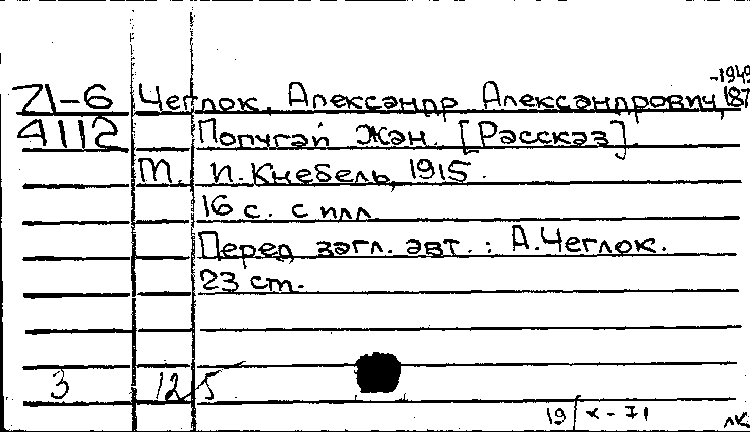 -1949
Z1-6 Чеглок, Александр Александрович, 187
4112 Попугай Жан. [Рассказ].
М. И. Кнебель, 1915.
16 с. с илл.
Перед загл. авт.: А. Чеглок.
23 см.
3 125
19/X-71
лк